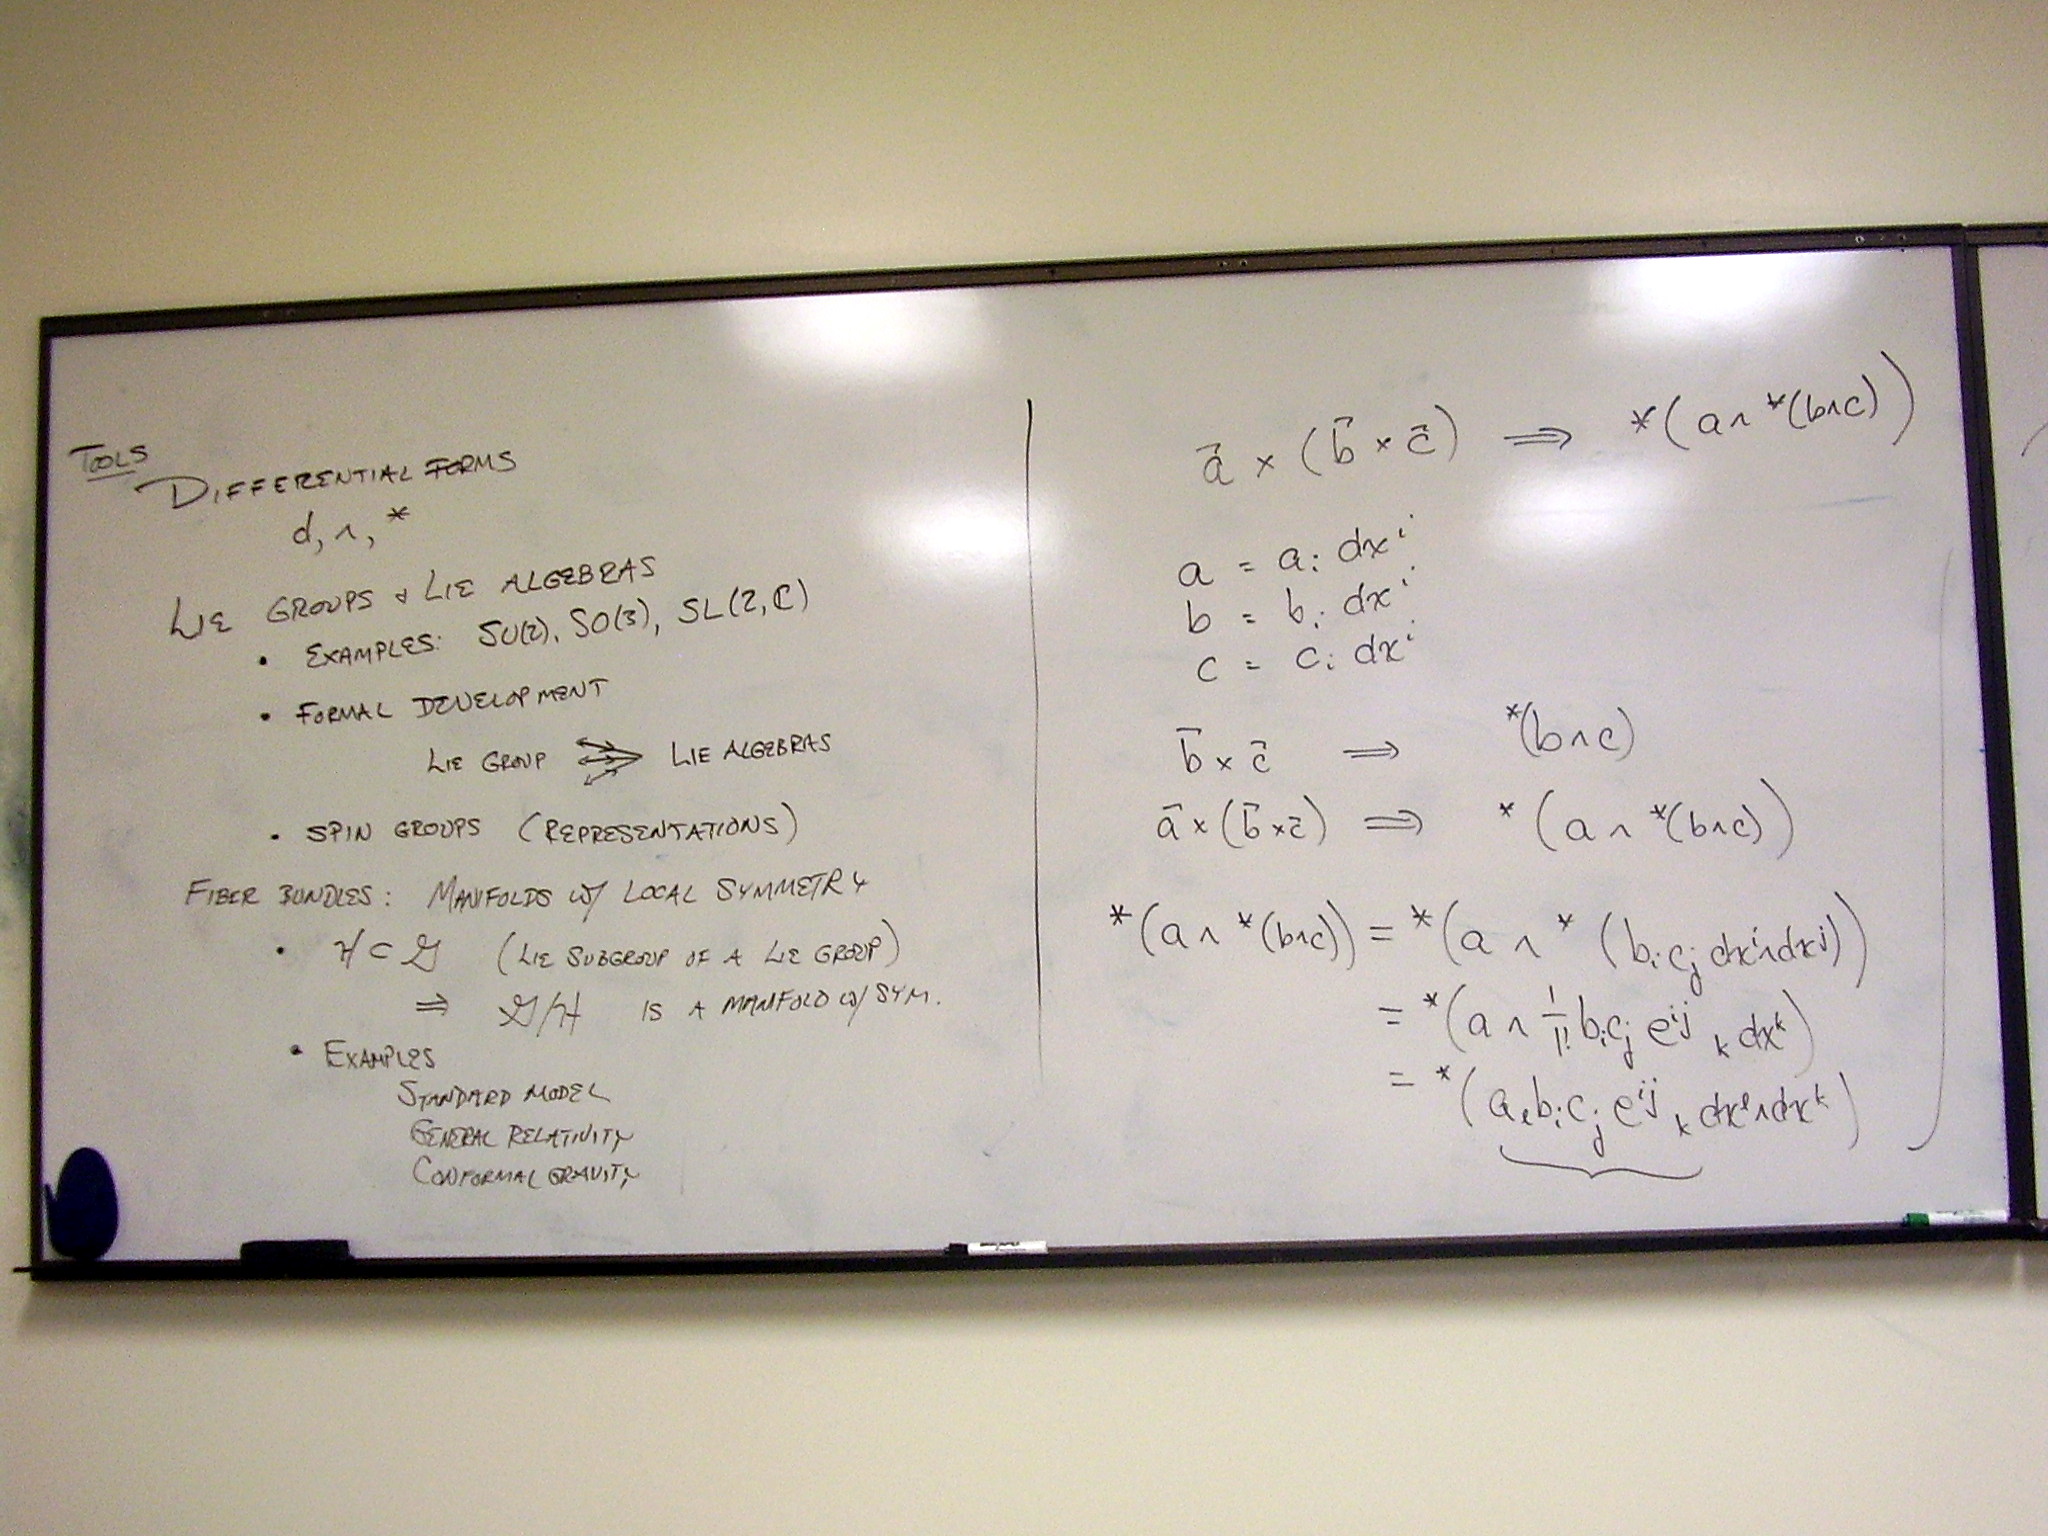 TOOLS
DIFFERENTIAL FORMS
d, ∧, *
LIE GROUPS & LIE ALGEBRAS
• EXAMPLES: SU(2), SO(3), SL(2,ℂ)
• FORMAL DEVELOPMENT
LIE GROUP ⇌ LIE ALGEBRAS
• SPIN GROUPS (REPRESENTATIONS)
FIBER BUNDLES: MANIFOLDS W/ LOCAL SYMMETRY
• ℋ ⊂ 𝒢 (LIE SUBGROUP OF A LIE GROUP)
⇒ 𝒢/ℋ IS A MANIFOLD W/ SYM.
• EXAMPLES
STANDARD MODEL
GENERAL RELATIVITY
CONFORMAL GRAVITY
a⃗ × (b⃗ × c⃗) ⇒ *(a ∧ *(b∧c))
a = aᵢ dxⁱ
b = bᵢ dxⁱ
c = cᵢ dxⁱ
b⃗ × c⃗ ⇒ *(b∧c)
a⃗ × (b⃗ × c⃗) ⇒ *(a ∧ *(b∧c))
*(a ∧ *(b∧c)) = *(a ∧ *(bᵢcⱼ dxⁱ∧dxʲ))
= *(a ∧ 1/1! bᵢcⱼ eⁱʲₖ dxᵏ)
= *(aₑbᵢcⱼ eⁱʲₖ dxᵉ∧dxᵏ)